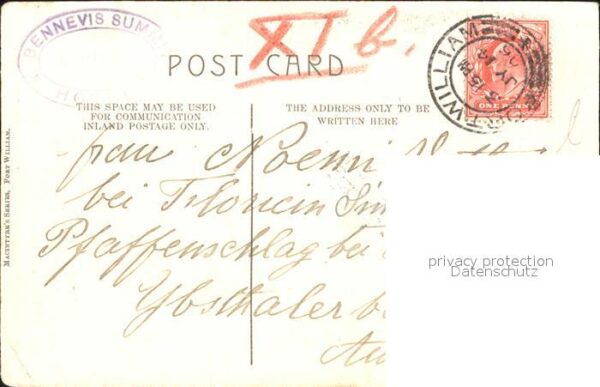 BENNEVIS SUMM
XI b.
POST CARD
FORT WILLIAM
JY
ONE PENNY
THIS SPACE MAY BE USED
FOR COMMUNICATION
INLAND POSTAGE ONLY.
THE ADDRESS ONLY TO BE
WRITTEN HERE
MACINTYRE'S SERIES, FORT WILLIAM.
Frau Noemi
bei Floricin
Pfaffenschlag bei
Ybsthaler b
Au
privacy protection
Datenschutz